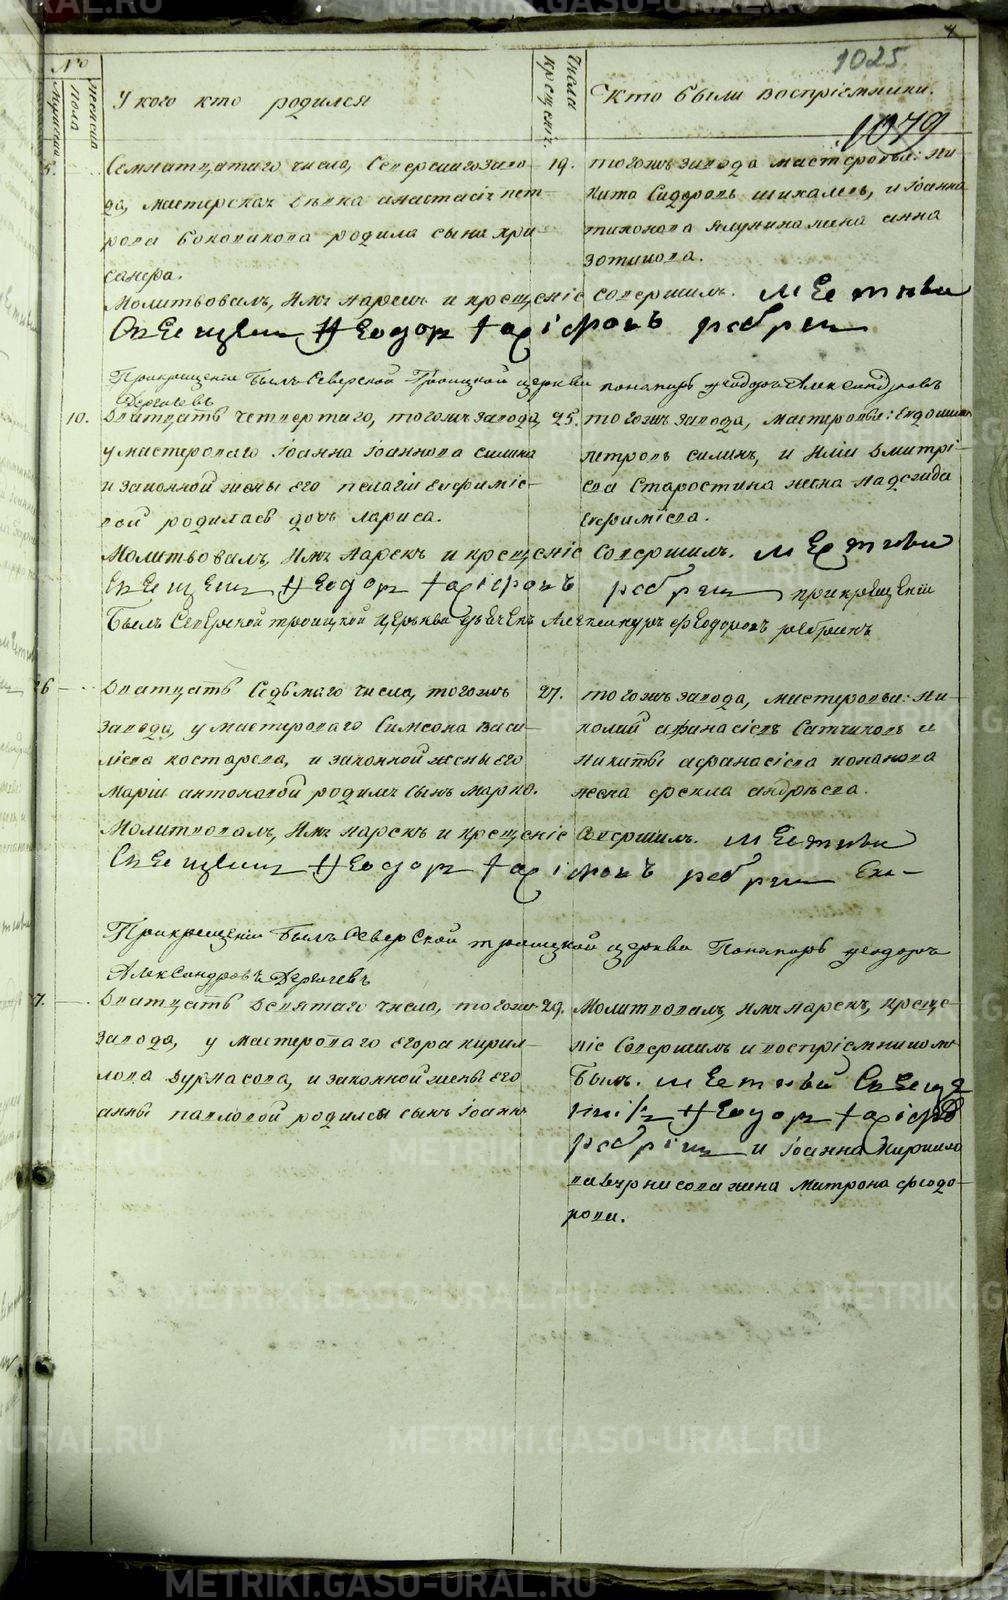 1025
№
Мужеска
пола
женска
У кого кто родился
числа
крещенiя.
Кто были воспрiемники.
1079
5.
Семнатцатаго числа, Северскаго заво-
да, мастерская девка анастасiя пет-
рова родила сына хри-
санфа.
19.
тогожъ завода мастеровые: Ни-
кита Сидоровъ и Iоанна
тихонова жена анна
зотикова.
Молитвовалъ, имя нарекъ и крещенiе совершилъ. местны
Священникъ Феодор
При крещенiи былъ Северской Троицкой церкви понамарь Феодоръ Александровъ
Дергачевъ
10.
Дватцать четвертаго, тогожъ завода,
у мастероваго Iоанна Iоаннова силина
и законной жены его пелагiи евфимiе-
вой родилась дочь лариса.
25.
тогожъ завода, мастеровые: Евдокимъ
петровъ силинъ, и Илiи Дмитрi-
ева Старостина жена надежда
ефимiева.
Молитвовалъ, имя нарекъ и крещенiе совершилъ. местны
Священникъ Феодор при крещенiи
былъ Северской троицкой церкви Феодоровъ
6
Дватцать Седьмаго числа, тогожъ
завода, у мастероваго Симеона васи-
лiева костарева, и законной жены его
марiи антоновой родился сынъ марко.
27.
тогожъ завода, мастеровые: Ни-
колай афанасiевъ и
никиты афанасiева конанова
жена фекла андреева.
Молитвовалъ, имя нарекъ и крещенiе совершилъ. местны
Священникъ Феодор
При крещенiи былъ Северской троицкой церкви Понамарь Феодоръ
Александровъ Дергачевъ
7.
Дватцать Девятаго числа, тогожъ
завода, у мастероваго Егора кирил-
лова Дурнасова, и законной жены его
анны павловой родился сынъ Iоаннъ
29.
Молитвовалъ, имя нарекъ, креще-
нiе совершилъ и воспрiемникомъ
былъ. местный Священ
никъ Феодор
и Iоанна Кирилло
ва Дурнасова жена Матрона феодо-
рова.
METRIKI.GASO-URAL.RU